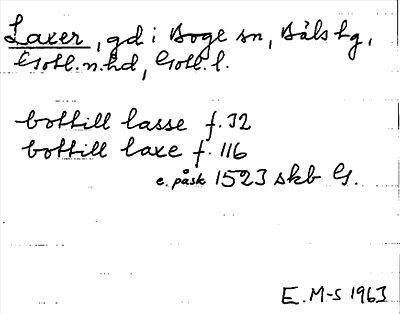 Laxer, gd i Boge sn, Bäls tg,
Gotl. n. hd, Gotl. l.
bottill lasse f. 32
bottill laxe f. 116
e. påsk 1523 skb G.
E. M-s 1963